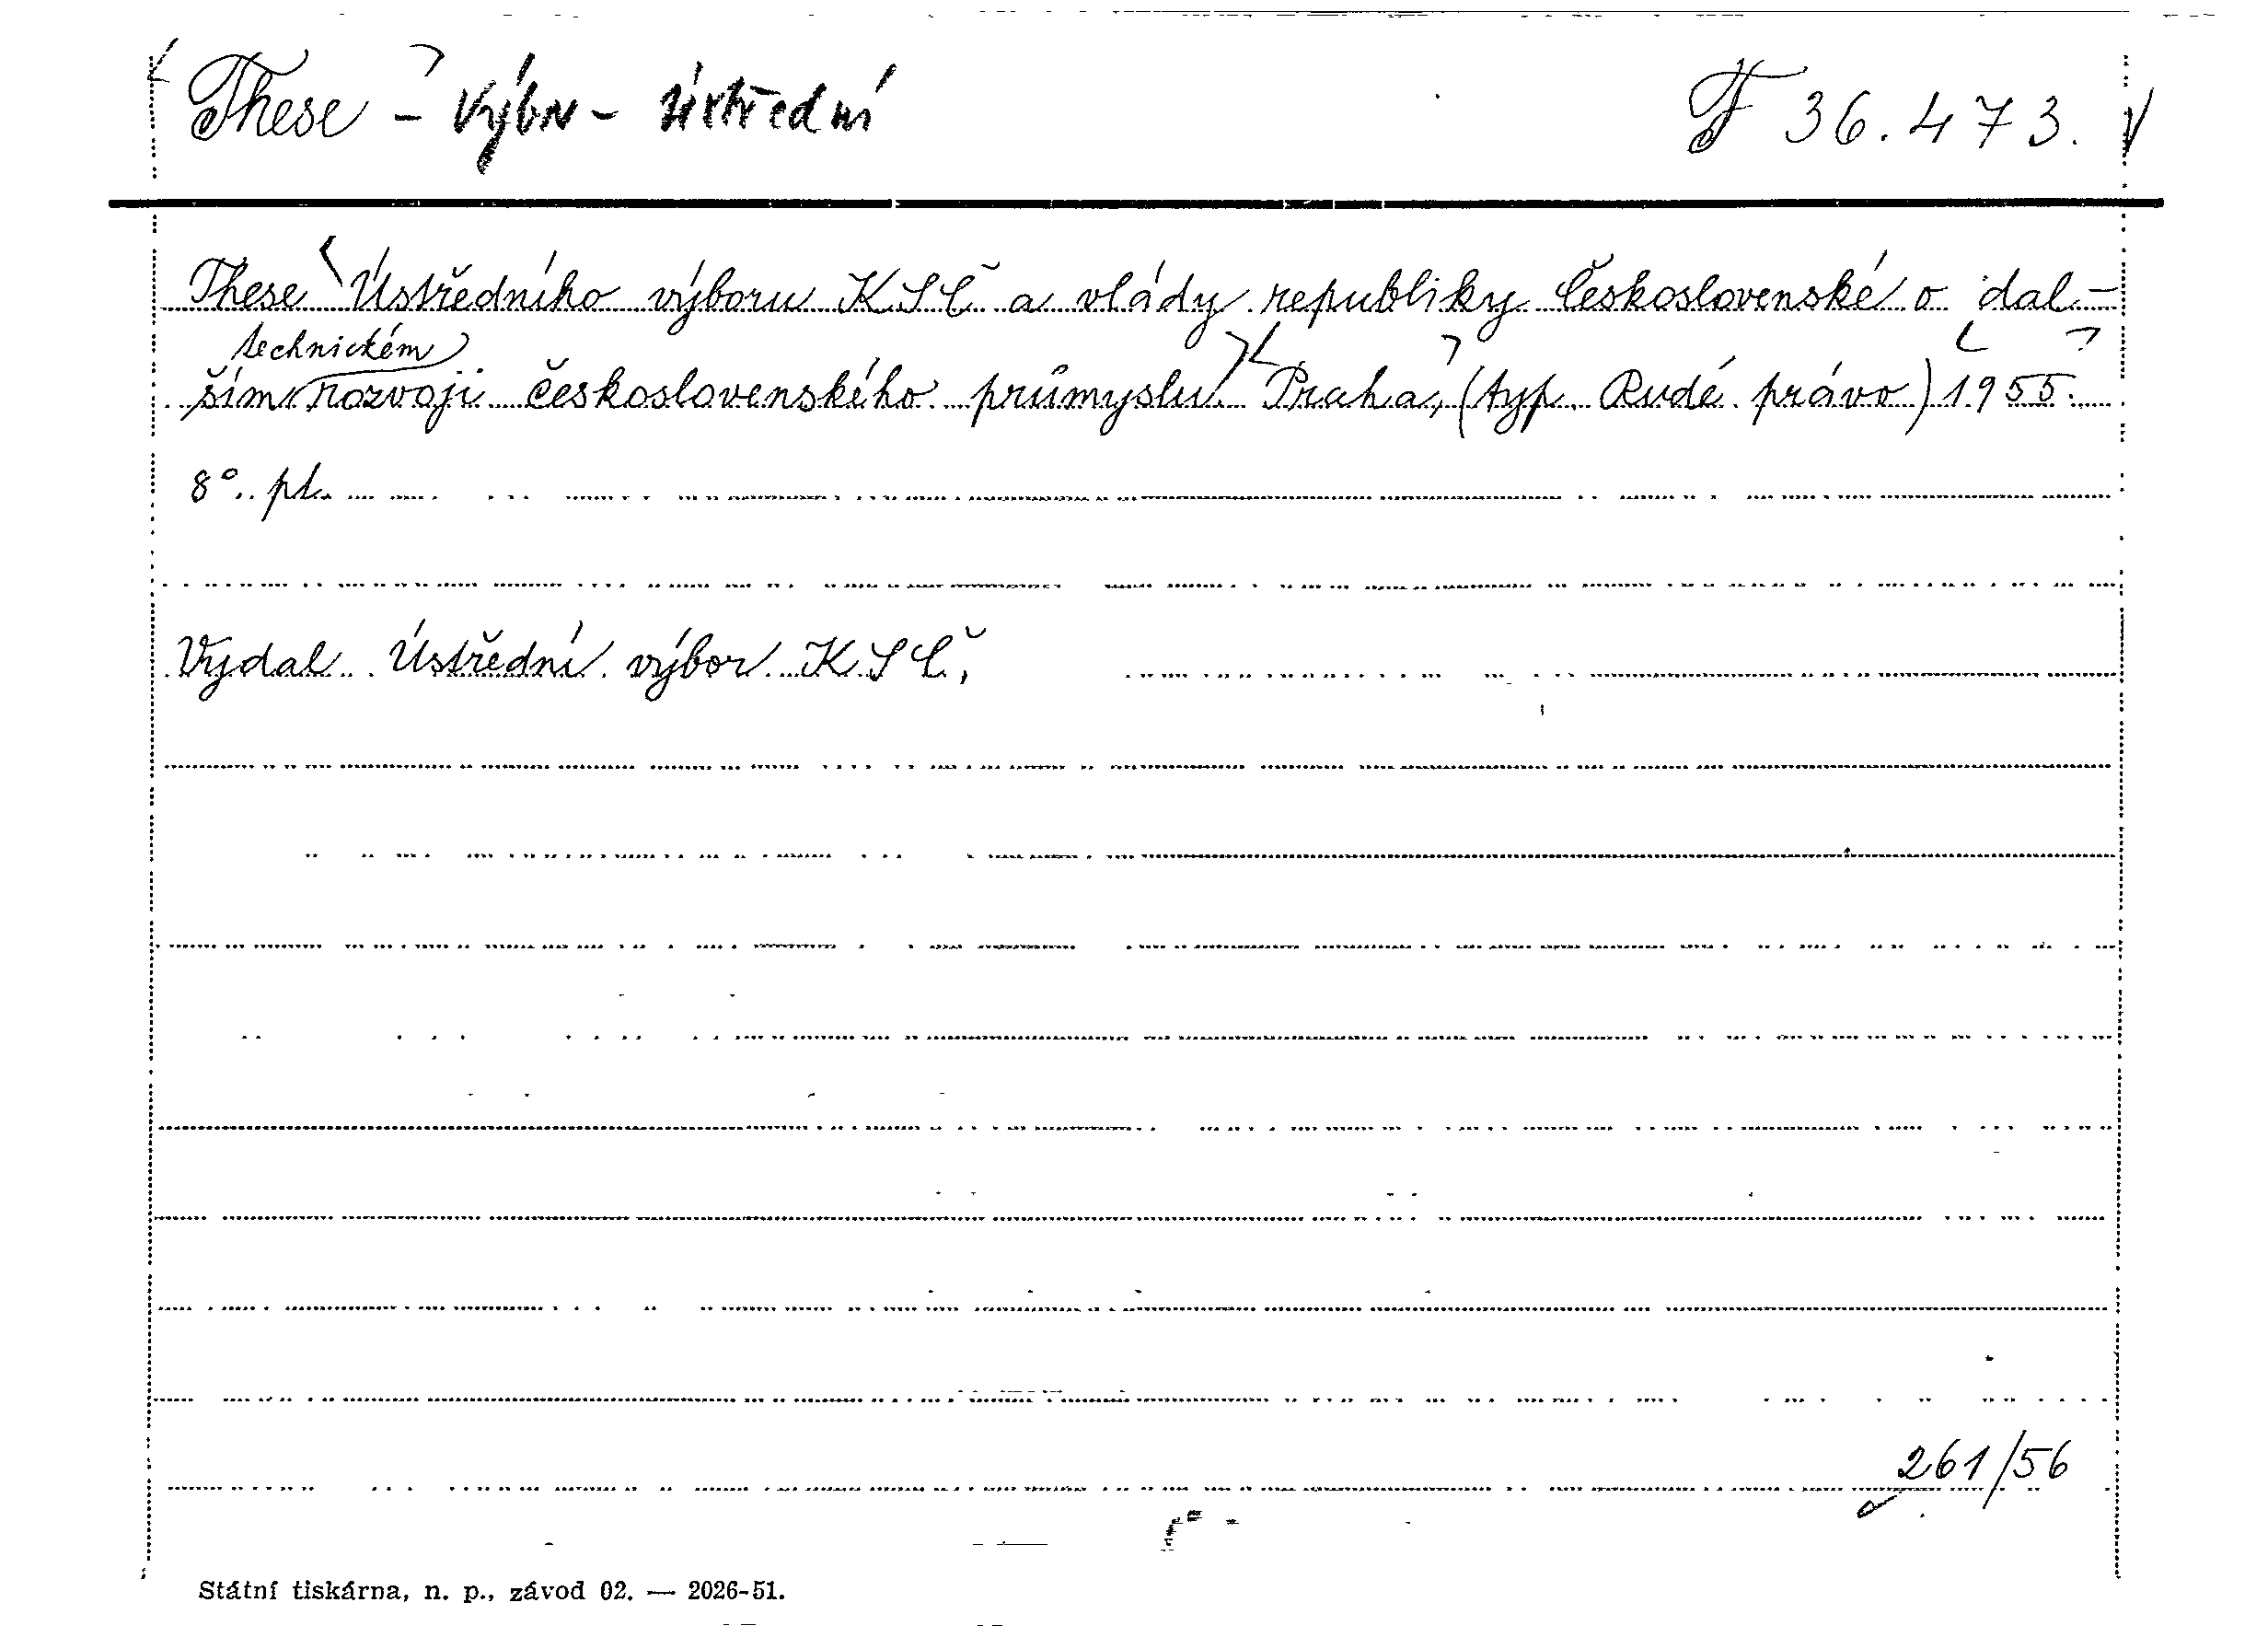 These - výbor - ústřední F 36.473.
These Ústředního výboru KSČ a vlády republiky Československé o dal-
technickém
ším rozvoji československého průmyslu. Praha, (typ. Rudé právo) 1955.
8°. pl.
Vydal Ústřední výbor KSČ.
261/56
Státní tiskárna, n. p., závod 02. — 2026-51.